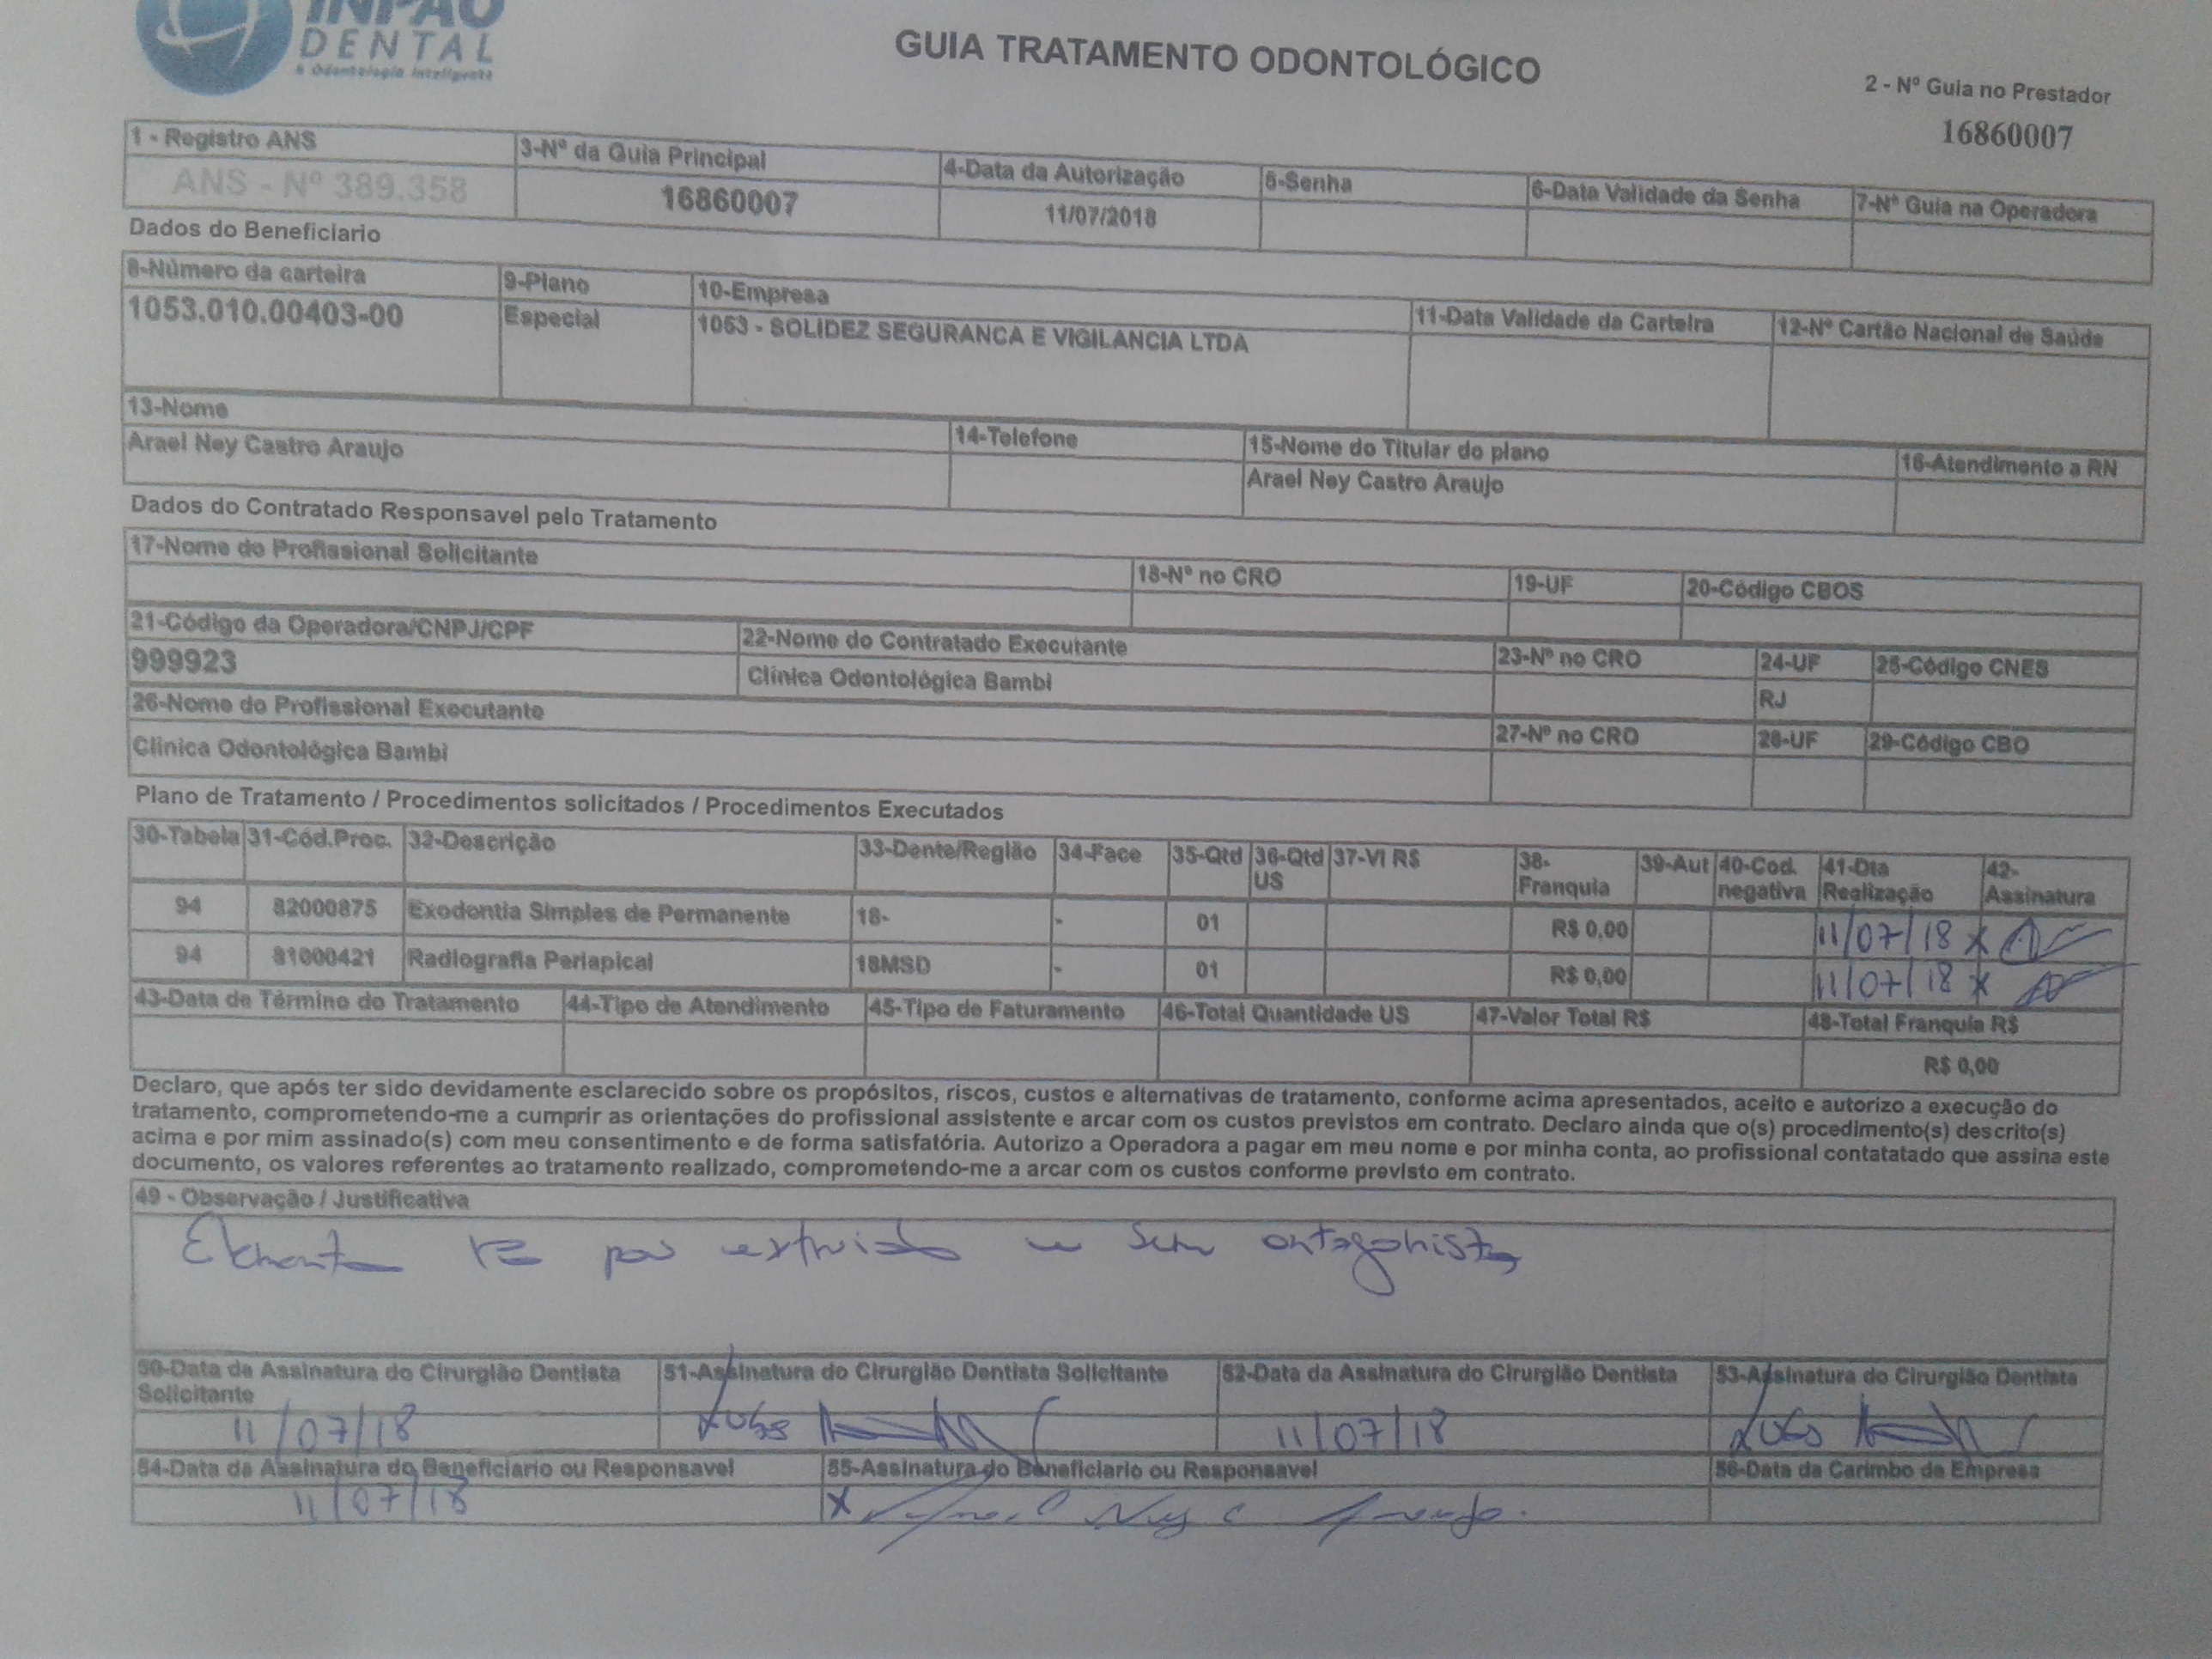 INPAO
DENTAL
A Odontologia Inteligente
GUIA TRATAMENTO ODONTOLÓGICO
2 - Nº Guia no Prestador
16860007
1 - Registro ANS
ANS - Nº 389.358
3-Nº da Guia Principal
16860007
4-Data da Autorização
11/07/2018
5-Senha
6-Data Validade da Senha
7-Nº Guia na Operadora
Dados do Beneficiario
8-Número da carteira
1053.010.00403-00
9-Plano
Especial
10-Empresa
1063 - SOLIDEZ SEGURANCA E VIGILANCIA LTDA
11-Data Validade da Carteira
12-Nº Cartão Nacional de Saúde
13-Nome
Arael Ney Castro Araujo
14-Telefone
15-Nome do Titular do plano
Arael Ney Castro Araujo
16-Atendimento a RN
Dados do Contratado Responsavel pelo Tratamento
17-Nome do Profissional Solicitante
18-Nº no CRO
19-UF
20-Código CBOS
21-Código da Operadora/CNPJ/CPF
999923
22-Nome do Contratado Executante
Clínica Odontológica Bambi
23-Nº no CRO
24-UF
RJ
25-Código CNES
26-Nome do Profissional Executante
Clínica Odontológica Bambi
27-Nº no CRO
28-UF
29-Código CBO
Plano de Tratamento / Procedimentos solicitados / Procedimentos Executados
30-Tabela 31-Cód.Proc. 32-Descrição 33-Dente/Região 34-Face 35-Qtd 36-Qtd US 37-Vl R$ 38-Franquia 39-Aut 40-Cod. negativa 41-Dta Realização 42-Assinatura
94 82000875 Exodontia Simples de Permanente 18- - 01 R$ 0,00 11/07/18 X
94 81000421 Radiografia Periapical 18MSD - 01 R$ 0,00 11/07/18 X
43-Data de Término do Tratamento 44-Tipo de Atendimento 45-Tipo de Faturamento 46-Total Quantidade US 47-Valor Total R$ 48-Total Franquia R$
R$ 0,00
Declaro, que após ter sido devidamente esclarecido sobre os propósitos, riscos, custos e alternativas de tratamento, conforme acima apresentados, aceito e autorizo a execução do
tratamento, comprometendo-me a cumprir as orientações do profissional assistente e arcar com os custos previstos em contrato. Declaro ainda que o(s) procedimento(s) descrito(s)
acima e por mim assinado(s) com meu consentimento e de forma satisfatória. Autorizo a Operadora a pagar em meu nome e por minha conta, ao profissional contatatado que assina este
documento, os valores referentes ao tratamento realizado, comprometendo-me a arcar com os custos conforme previsto em contrato.
49 - Observação / Justificativa
Elemento 18 extruido e sem antagonista
50-Data da Assinatura do Cirurgião Dentista Solicitante
11/07/18
51-Assinatura do Cirurgião Dentista Solicitante
52-Data da Assinatura do Cirurgião Dentista
11/07/18
53-Assinatura do Cirurgião Dentista
54-Data da Assinatura do Beneficiario ou Responsavel
11/07/18
55-Assinatura do Beneficiario ou Responsavel
X
56-Data da Carimbo da Empresa